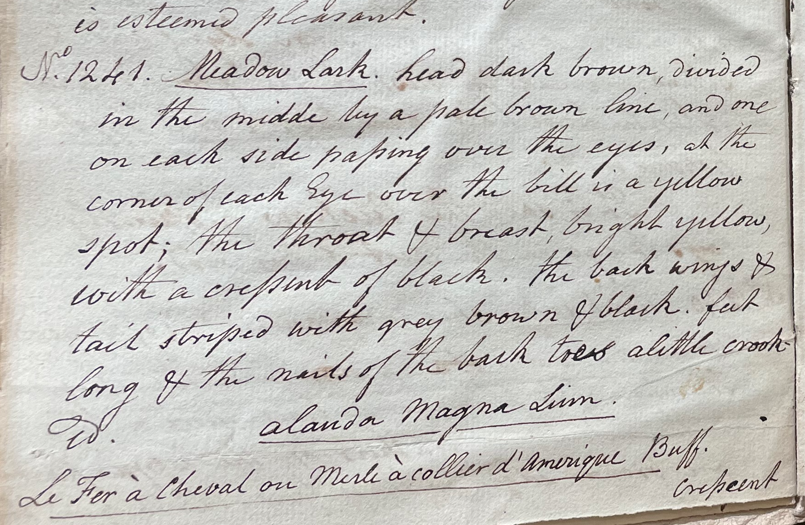 is esteemed pleasant.
No. 1241. Meadow Lark. head dark brown, divided
in the midde by a pale brown line, and one
on each side paſsing over the eyes, at the
corner of each Eye over the bill is a yellow
spot; the throat & breast, bright yellow,
with a creſsent of black. the back wings &
tail striped with grey brown & black. feet
long & the nails of the back toes alittle crook-
ed.
alauda Magna Linn.
Le Fer à Cheval ou Merle à collier d'Amerique Buff.
creſcent